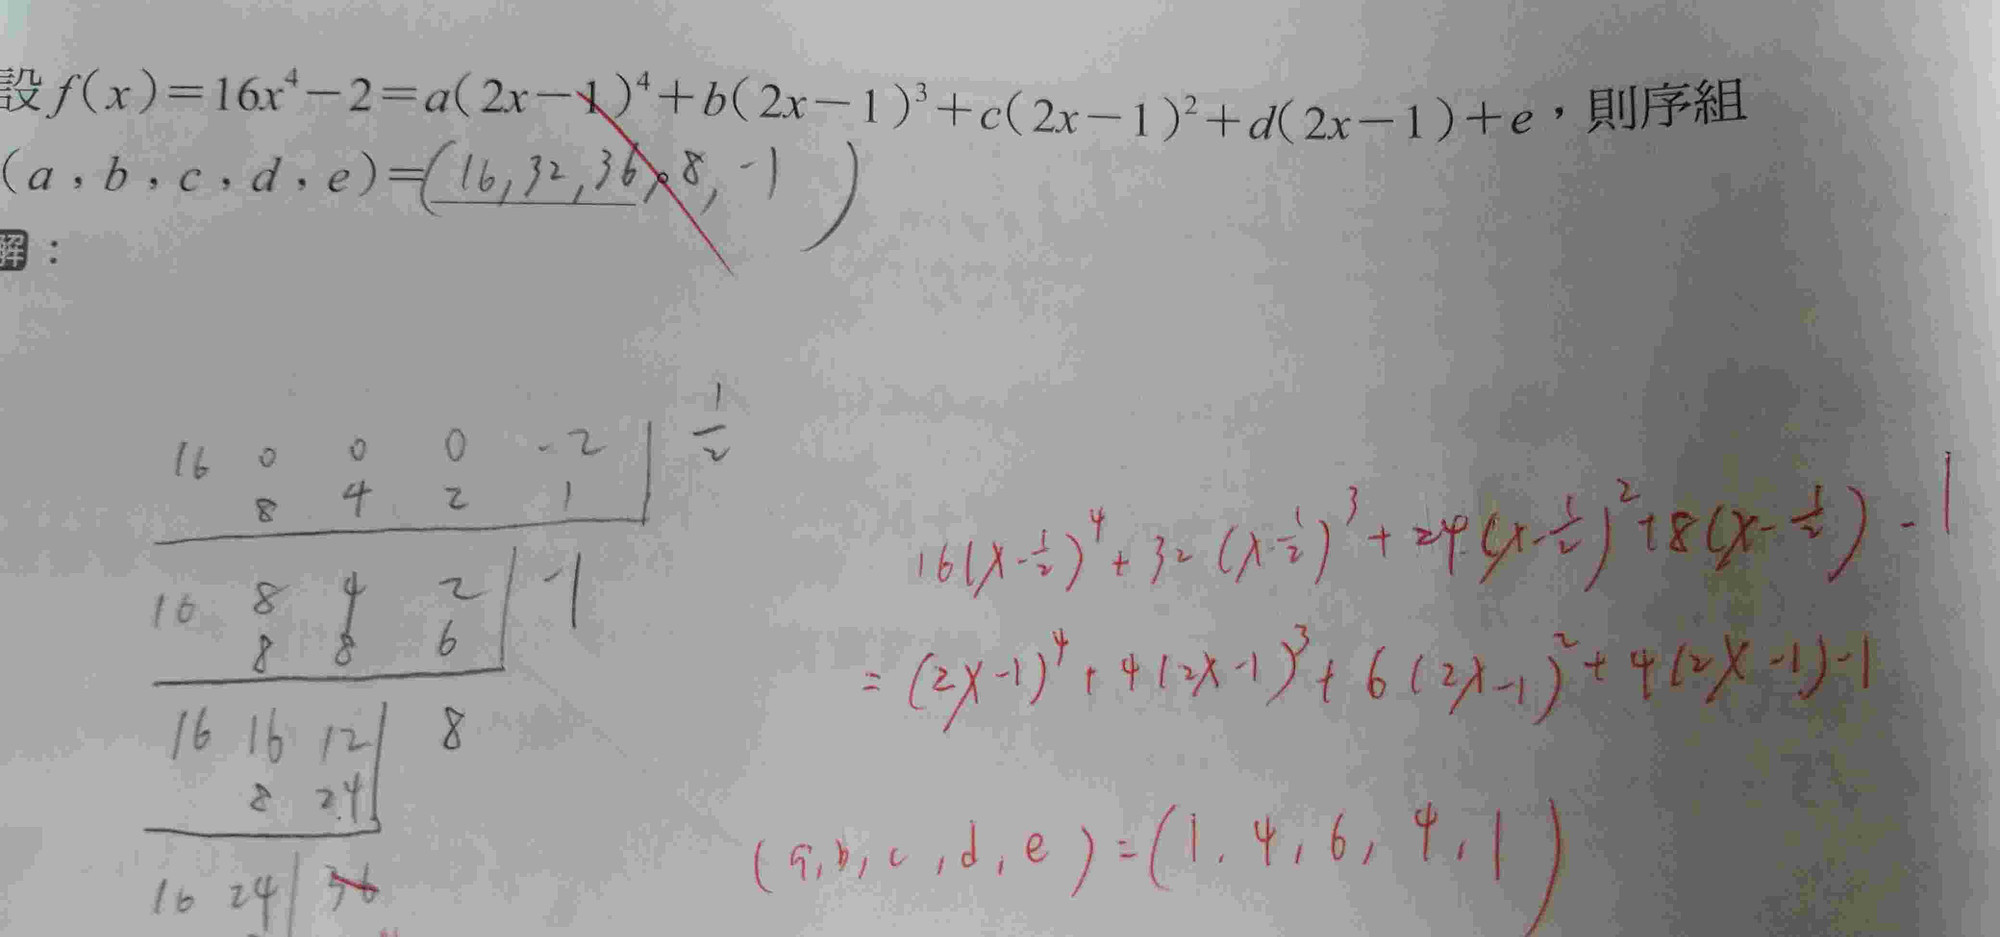 設f(x)=16x⁴-2=a(2x-1)⁴+b(2x-1)³+c(2x-1)²+d(2x-1)+e，則序組
(a，b，c，d，e)=(16,32,36,8,-1)
解：
16 0 0 0 -2 | 1/2
8 4 2 1
16 8 4 2 | -1
8 8 6
16 16 12 | 8
8 24
16 24 | 36
16(x-1/2)⁴+32(x-1/2)³+24(x-1/2)²+8(x-1/2)-1
=(2x-1)⁴+4(2x-1)³+6(2x-1)²+4(2x-1)-1
(a,b,c,d,e)=(1,4,6,4,1)